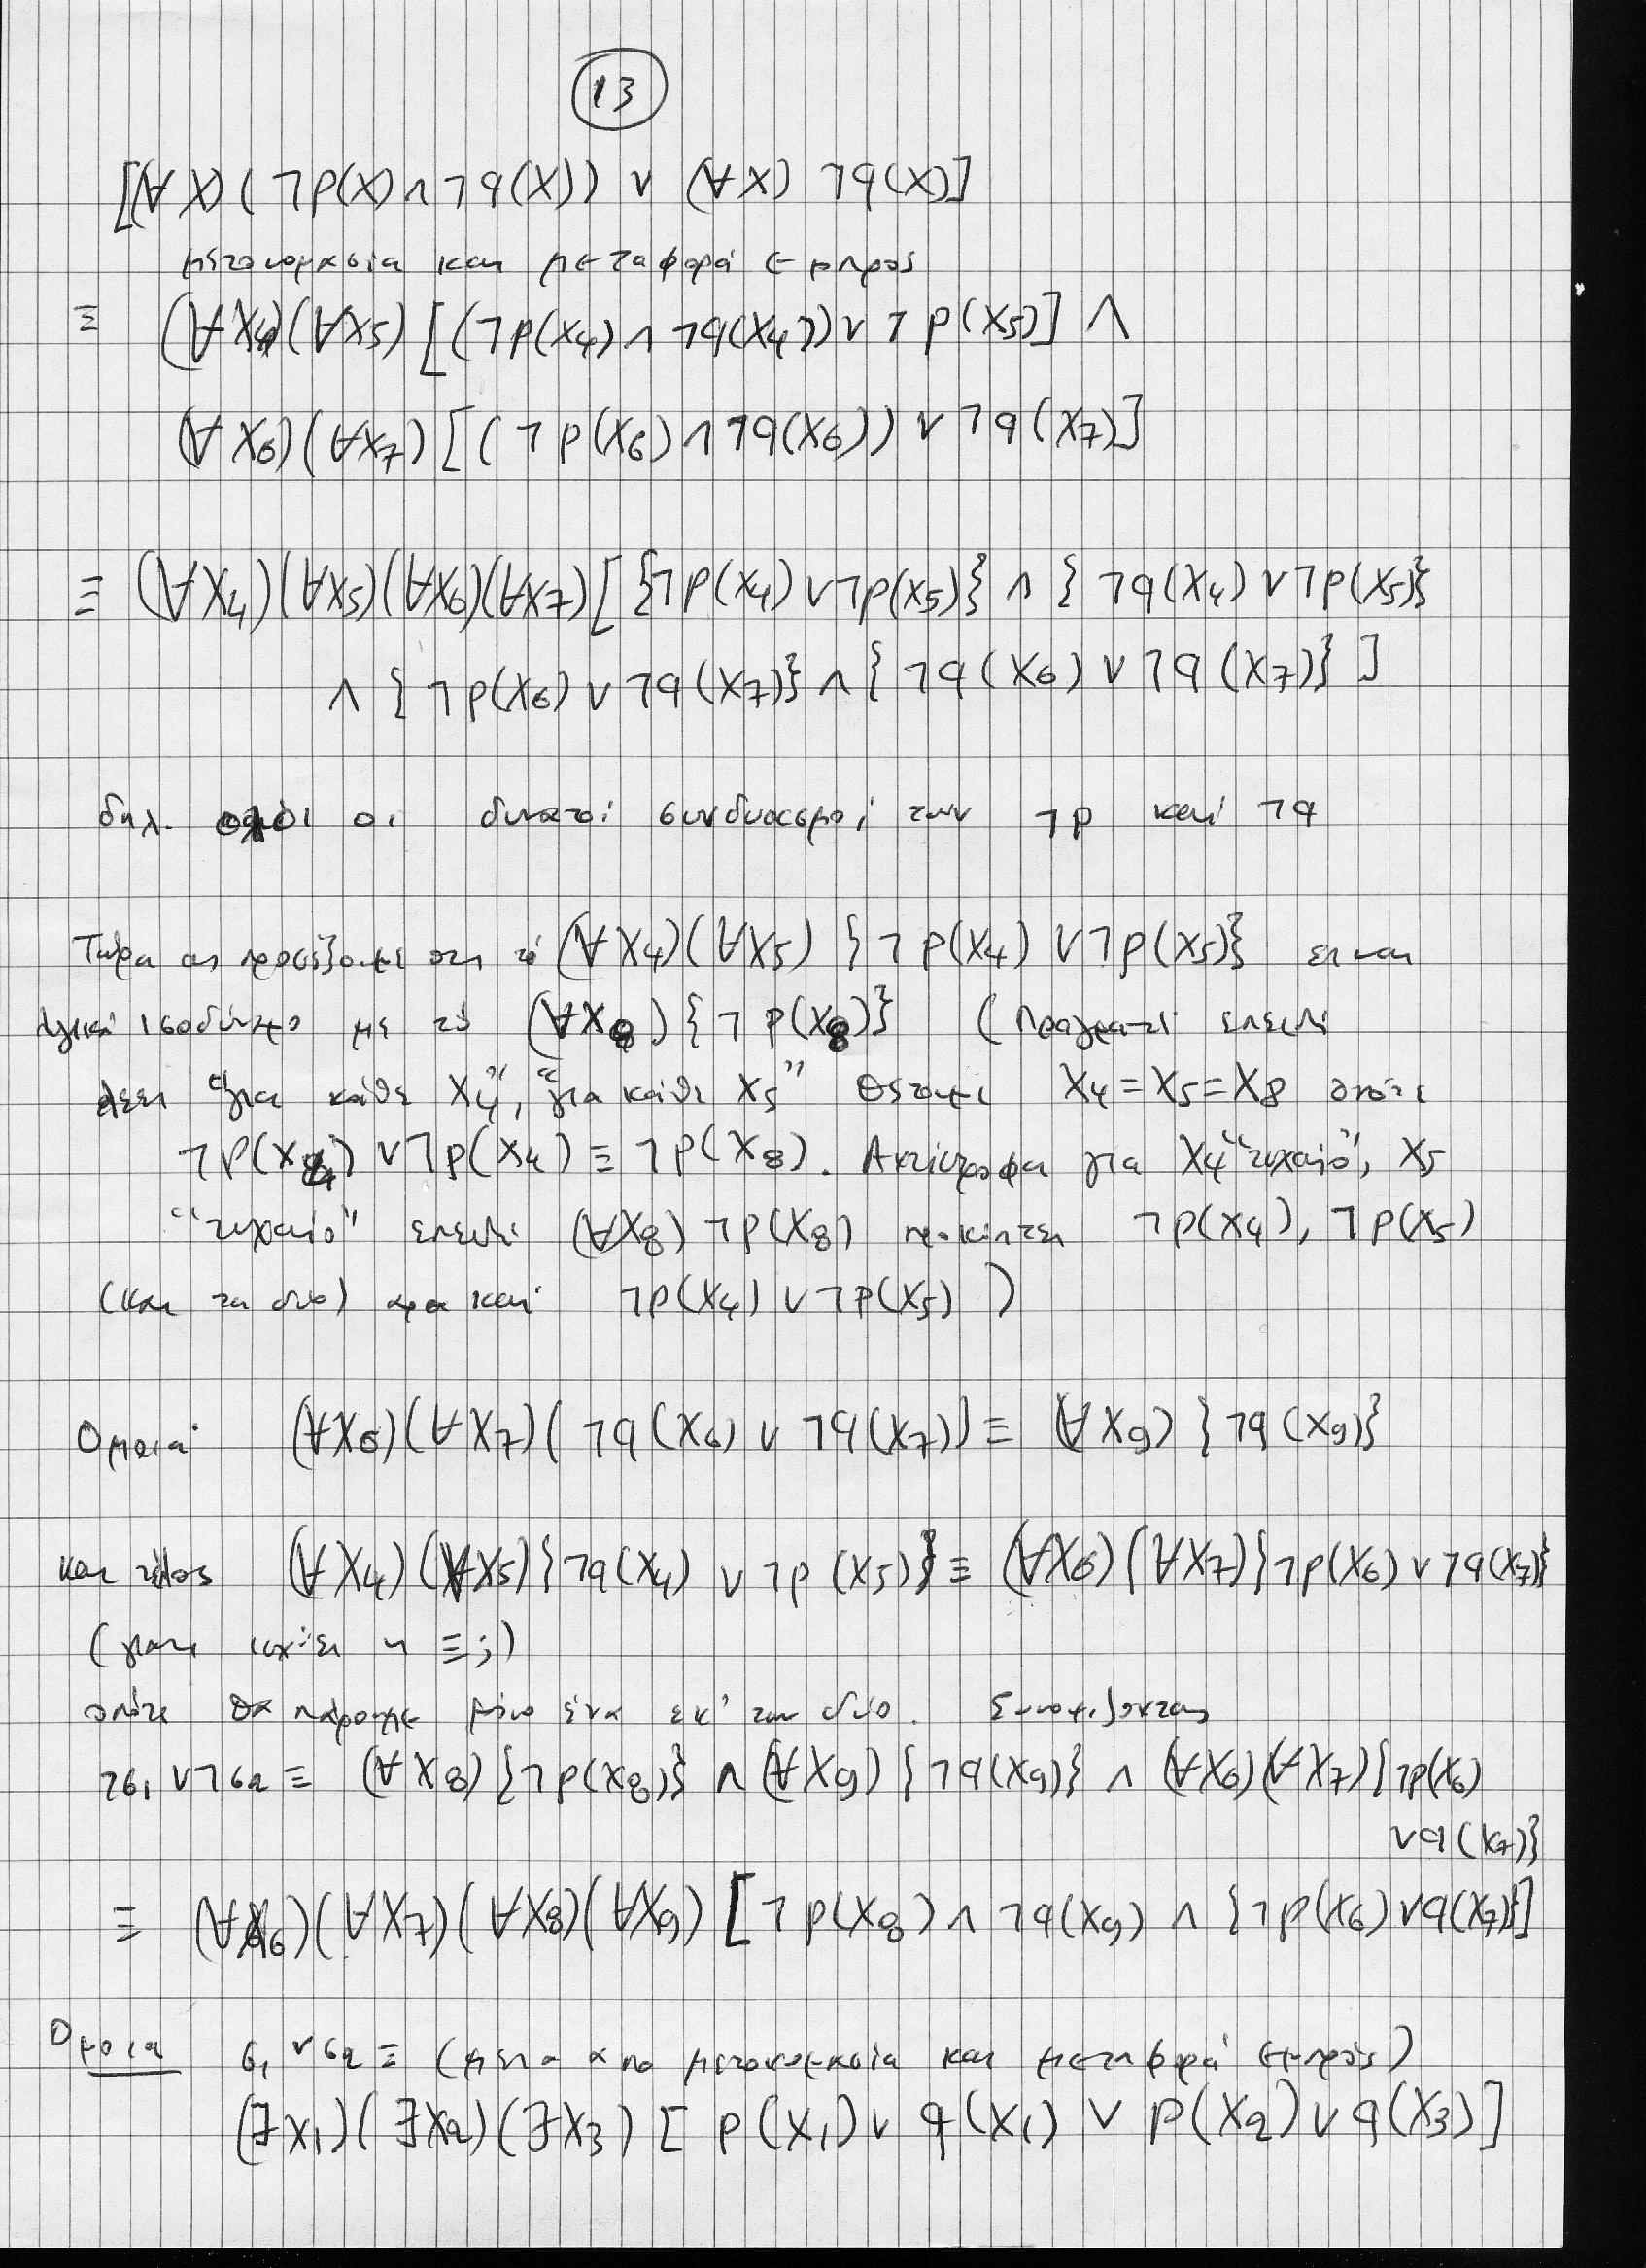 13
[(∀X)(¬p(X)∧¬q(X)) ∨ (∀X) ¬q(X)]
μετονομασία και μεταφορά εμπρός
≡ (∀X₄)(∀X₅) [(¬p(X₄)∧¬q(X₄))∨¬p(X₅)] ∧
(∀X₆)(∀X₇) [(¬p(X₆)∧¬q(X₆))∨¬q(X₇)]
≡ (∀X₄)(∀X₅)(∀X₆)(∀X₇)[{¬p(X₄)∨¬p(X₅)} ∧ {¬q(X₄)∨¬p(X₅)}
∧ {¬p(X₆)∨¬q(X₇)} ∧ {¬q(X₆)∨¬q(X₇)}]
δηλ. όλοι οι δυνατοί συνδυασμοί των ¬p και ¬q
Τώρα ας προσέξουμε ότι τό (∀X₄)(∀X₅) {¬p(X₄) ∨¬p(X₅)} είναι
λογικά ισοδύναμο με τό (∀X₈){¬p(X₈)} (Πράγματι επειδή
λέει "για κάθε X₄", "για κάθε X₅" θέτουμε X₄=X₅=X₈ οπότε
¬p(X₄) ∨¬p(X₄) ≡ ¬p(X₈). Αντίστροφα για X₄ "τυχαίο", X₅
"τυχαίο" επειδή (∀X₈) ¬p(X₈) προκύπτει ¬p(X₄), ¬p(X₅)
(και τα δύο) άρα και ¬p(X₄) ∨¬p(X₅) )
Ομοια (∀X₆)(∀X₇)(¬q(X₆) ∨ ¬q(X₇)) ≡ (∀X₉) {¬q(X₉)}
και τέλος (∀X₄)(∀X₅){¬q(X₄) ∨¬p(X₅)} ≡ (∀X₆)(∀X₇){¬p(X₆)∨¬q(X₇)}
(γιατί ισχύει η ≡;)
οπότε θα πάρουμε μόνο ένα εκ' των δύο. Συνοψίζοντας
¬σ₁∨¬σ₂ ≡ (∀X₈){¬p(X₈)} ∧ (∀X₉) {¬q(X₉)} ∧ (∀X₆)(∀X₇){¬p(X₆)
∨q(X₇)}
≡ (∀X₆)(∀X₇)(∀X₈)(∀X₉) [¬p(X₈)∧¬q(X₉) ∧ {¬p(X₆)∨q(X₇)}]
Ομοια σ₁∨σ₂ ≡ (μετά από μετονομασία και μεταφορά εμπρός)
(∃X₁)(∃X₂)(∃X₃) [p(X₁)∨ q(X₁) ∨ p(X₂)∨q(X₃)]